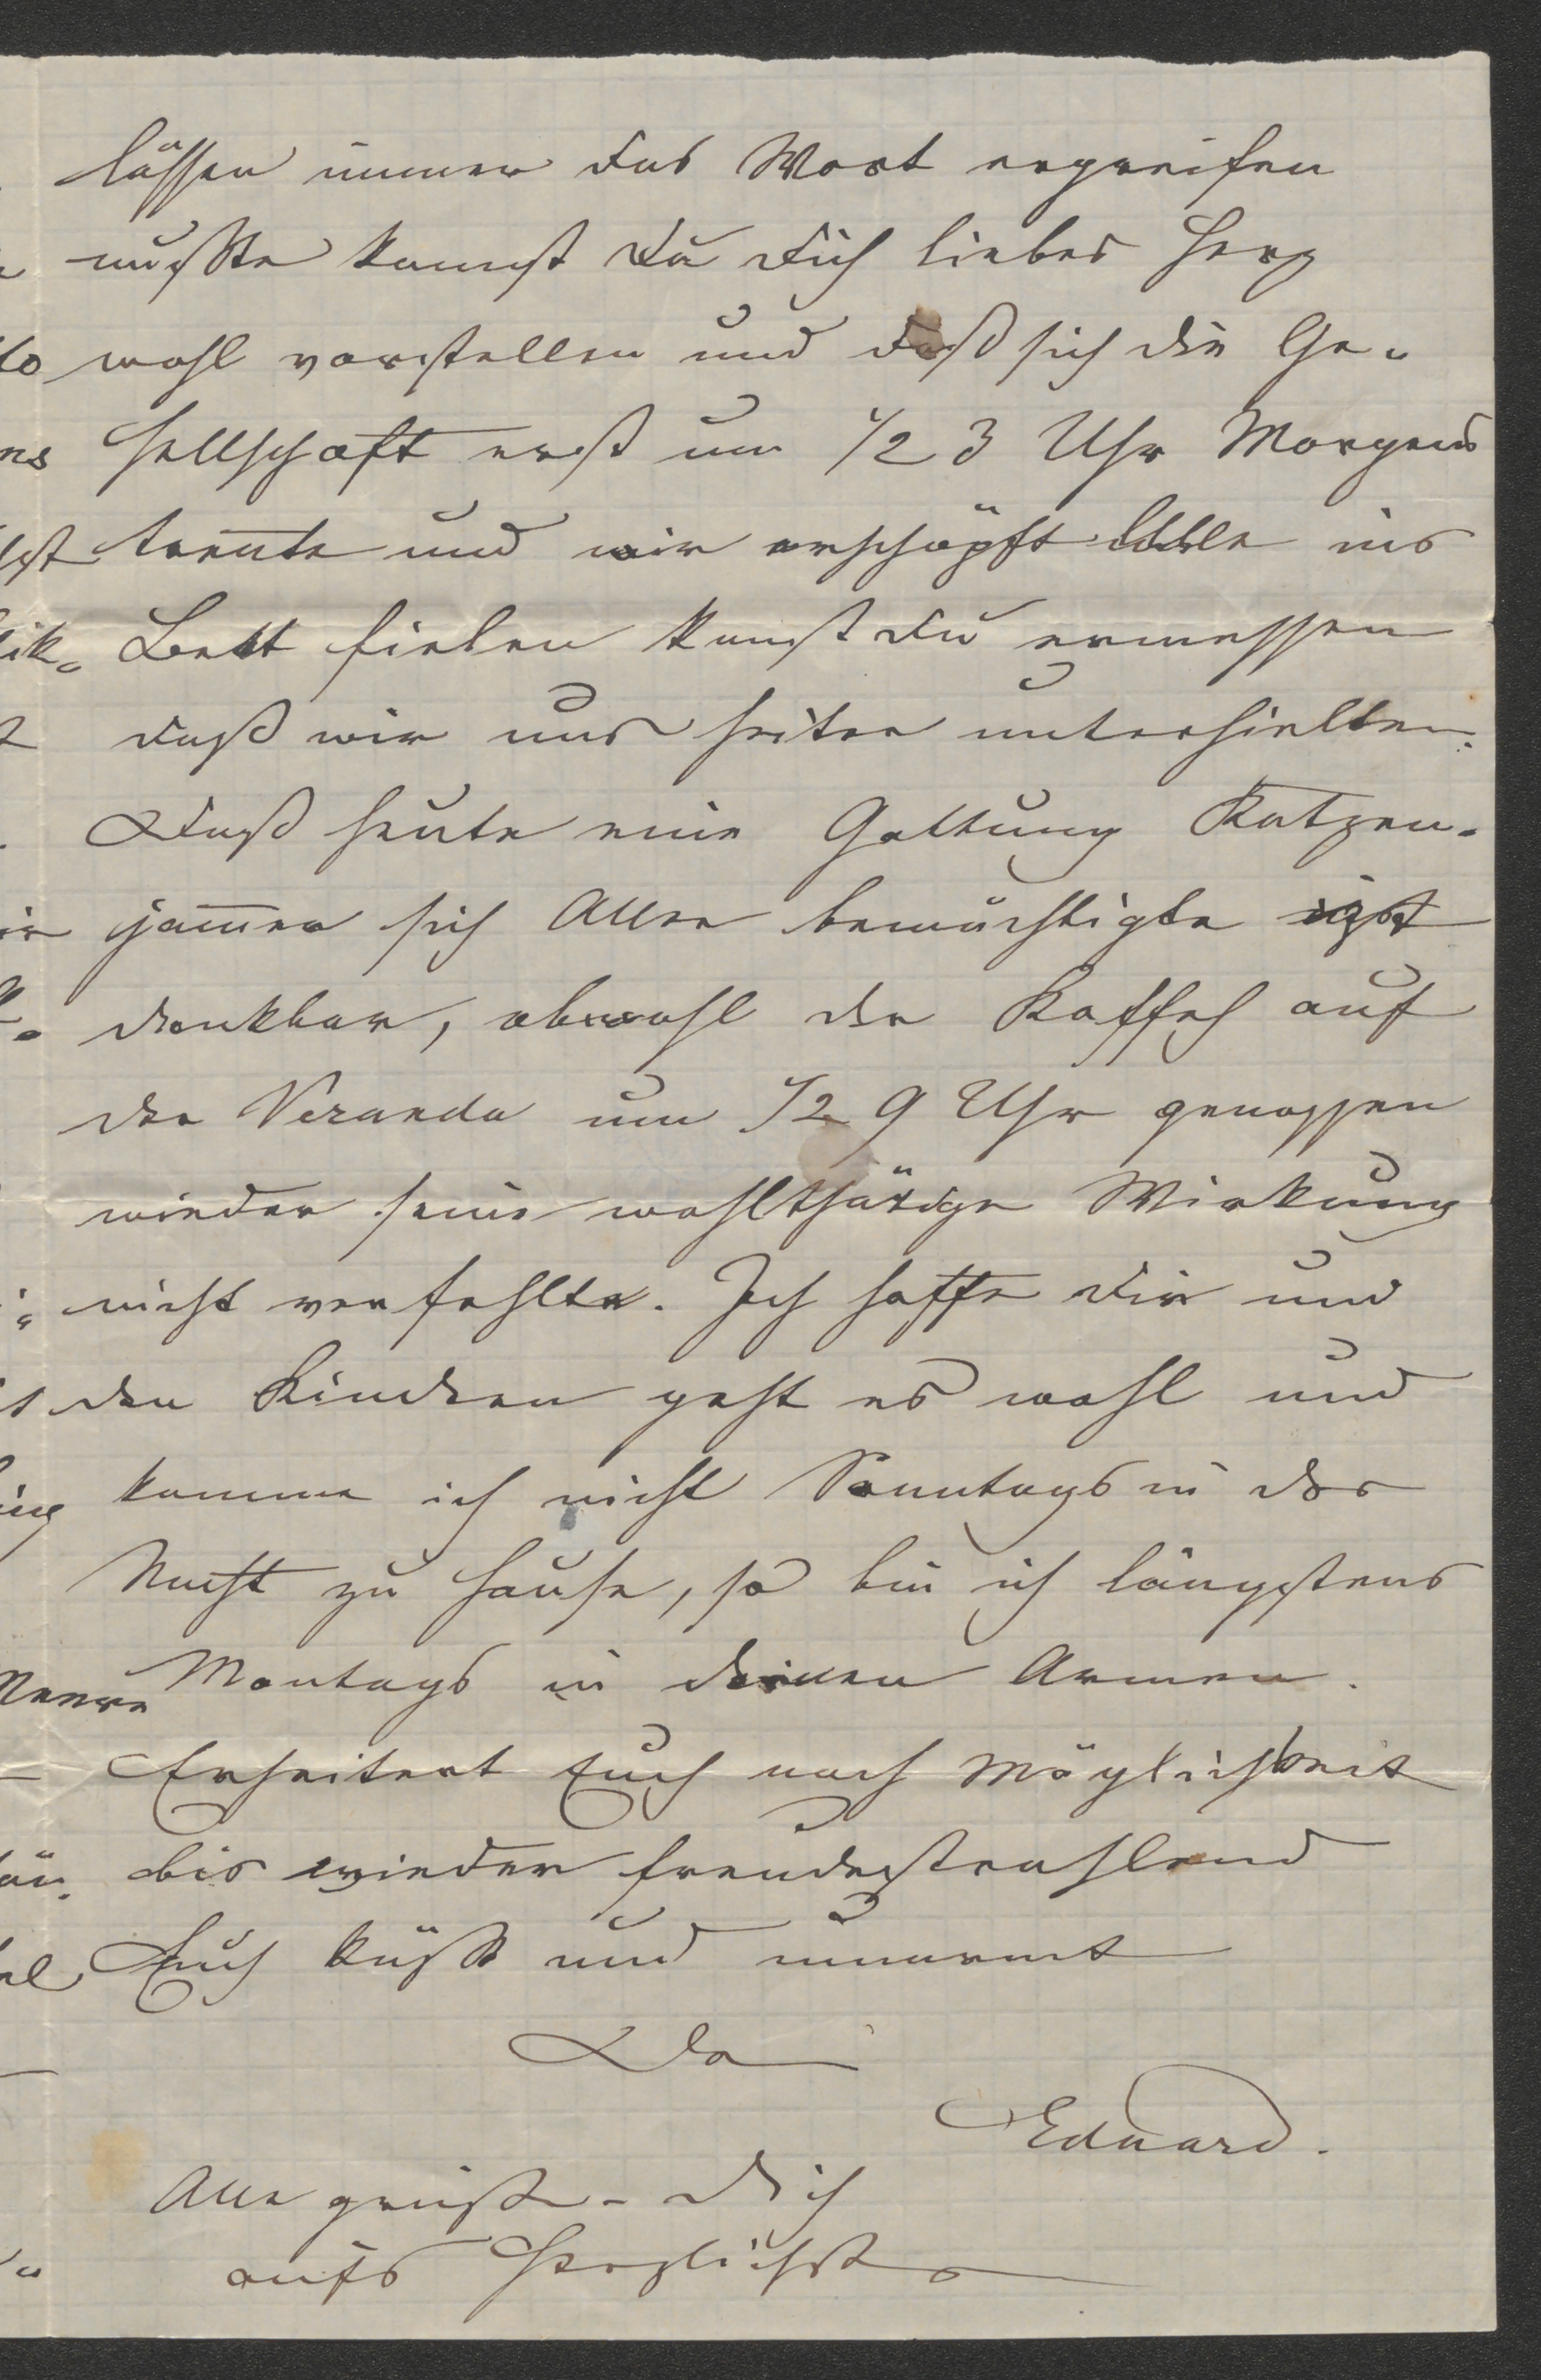 lassen immer das Wort ergreifen
mußte kannst Du Dich liebes Herz
wohl vorstellen und daß sich die Ge-
sellschaft erst um 1/2 3 Uhr Morgens
trennte und wir erschöpft Alle ins
Bett fielen kannst Du ermessen
daß wir uns heiter unterhielten.
Daß heute eine Gattung Katzen-
jammer sich Aller bemächtigte ist
denkbar, obwohl der Kaffeh auf
der Veranda um 1/2 9 Uhr genossen
wieder seine wohlthätige Wirkung
nicht verfehlte. Ich hoffe Dir und
den Kindern geht es wohl und
komme ich nicht Sonntags in der
Nacht zu Hause, so bin ich längstens
Montags in deinen Armen.
Erheitert Euch nach Möglichkeit
bis wieder freudestrahlend
Euch küßt und umarmt
Dein
Eduard.
Alle grüßen Dich
aufs Herzlichste